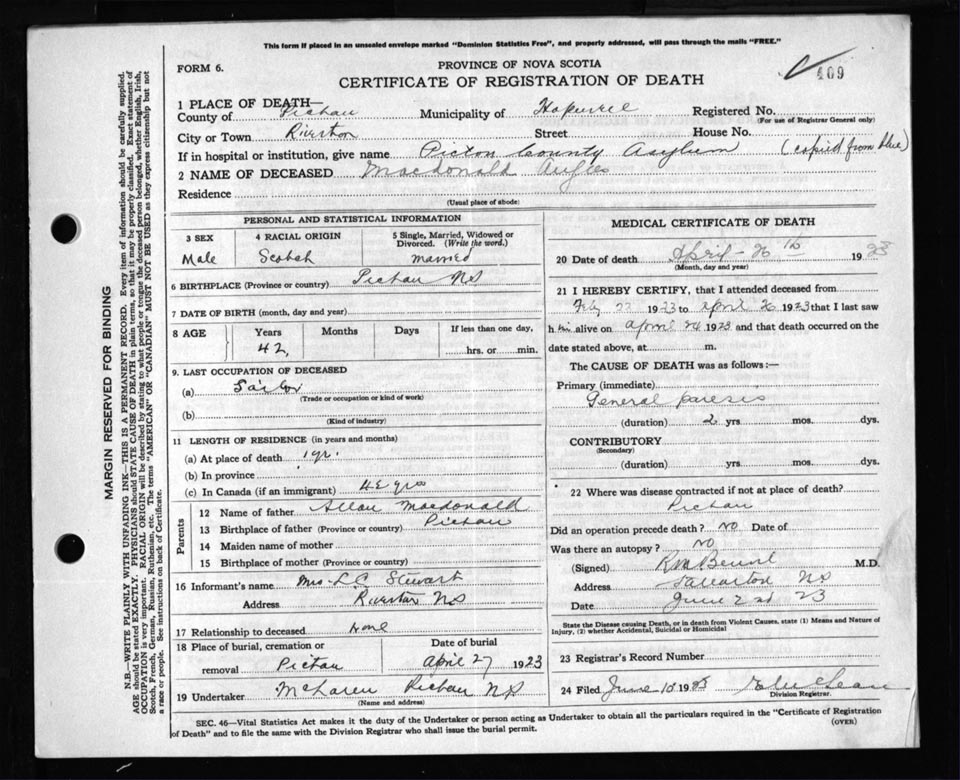 This form if placed in an unsealed envelope marked "Dominion Statistics Free", and properly addressed, will pass through the mails "FREE."
FORM 6.
PROVINCE OF NOVA SCOTIA
409
CERTIFICATE OF REGISTRATION OF DEATH
1 PLACE OF DEATH—
County of Pictou Municipality of Hopewell Registered No.
(For use of Registrar General only)
City or Town Riverton Street House No.
If in hospital or institution, give name Picton County Asylum (copied from blue)
2 NAME OF DECEASED Macdonald
Residence
(Usual place of abode)
PERSONAL AND STATISTICAL INFORMATION
3 SEX
4 RACIAL ORIGIN
5 Single, Married, Widowed or Divorced. (Write the word.)
Male Scotch married
6 BIRTHPLACE (Province or country) Pictou NS
7 DATE OF BIRTH (month, day and year)
8 AGE Years Months Days If less than one day,
42 hrs. or min.
9. LAST OCCUPATION OF DECEASED
(a)
(Trade or occupation or kind of work)
(b)
(Kind of industry)
11 LENGTH OF RESIDENCE (in years and months)
(a) At place of death 1 yr.
(b) In province
(c) In Canada (if an immigrant) 42 yrs
Parents
12 Name of father Allan Macdonald
13 Birthplace of father (Province or country) Pictou
14 Maiden name of mother
15 Birthplace of mother (Province or country)
16 Informant's name Mrs L C Stewart
Address Riverton NS
17 Relationship to deceased none
18 Place of burial, cremation or removal Pictou
Date of burial April 27 1923
19 Undertaker McLaren Pictou NS
(Name and address)
MEDICAL CERTIFICATE OF DEATH
20 Date of death April 26 th 1923
(Month, day and year)
21 I HEREBY CERTIFY, that I attended deceased from
Feby 1923 to april 26 1923 that I last saw
h im alive on april 24 1923 and that death occurred on the
date stated above, at m.
The CAUSE OF DEATH was as follows:—
Primary (immediate)
General paresis
(duration) 2 yrs mos. dys.
CONTRIBUTORY
(Secondary)
(duration) yrs. mos. dys.
22 Where was disease contracted if not at place of death?
Pictou
Did an operation precede death? NO Date of
Was there an autopsy? NO
(Signed) M.D.
Address NS
Date June 2nd 23
State the Disease causing Death, or in death from Violent Causes, state (1) Means and Nature of
Injury, (2) whether Accidental, Suicidal or Homicidal
23 Registrar's Record Number
24 Filed June 1923
Division Registrar.
SEC. 46—Vital Statistics Act makes it the duty of the Undertaker or person acting as Undertaker to obtain all the particulars required in the "Certificate of Registration
of Death" and to file the same with the Division Registrar who shall issue the burial permit.
(OVER)
MARGIN RESERVED FOR BINDING
N.B.—WRITE PLAINLY WITH UNFADING INK—THIS IS A PERMANENT RECORD. Every item of information should be carefully supplied.
AGE should be stated EXACTLY. PHYSICIANS should STATE CAUSE OF DEATH in plain terms, so that it may be properly classified. Exact statement of
OCCUPATION is very important. RACIAL ORIGIN will be described by stating to what people or tongue the deceased person belonged, whether English, Irish,
Scotch, French, German, Russian, Ruthenian, etc. The terms "AMERICAN" OR "CANADIAN" MUST NOT BE USED as they express citizenship but not
a race or people. See instructions on back of Certificate.